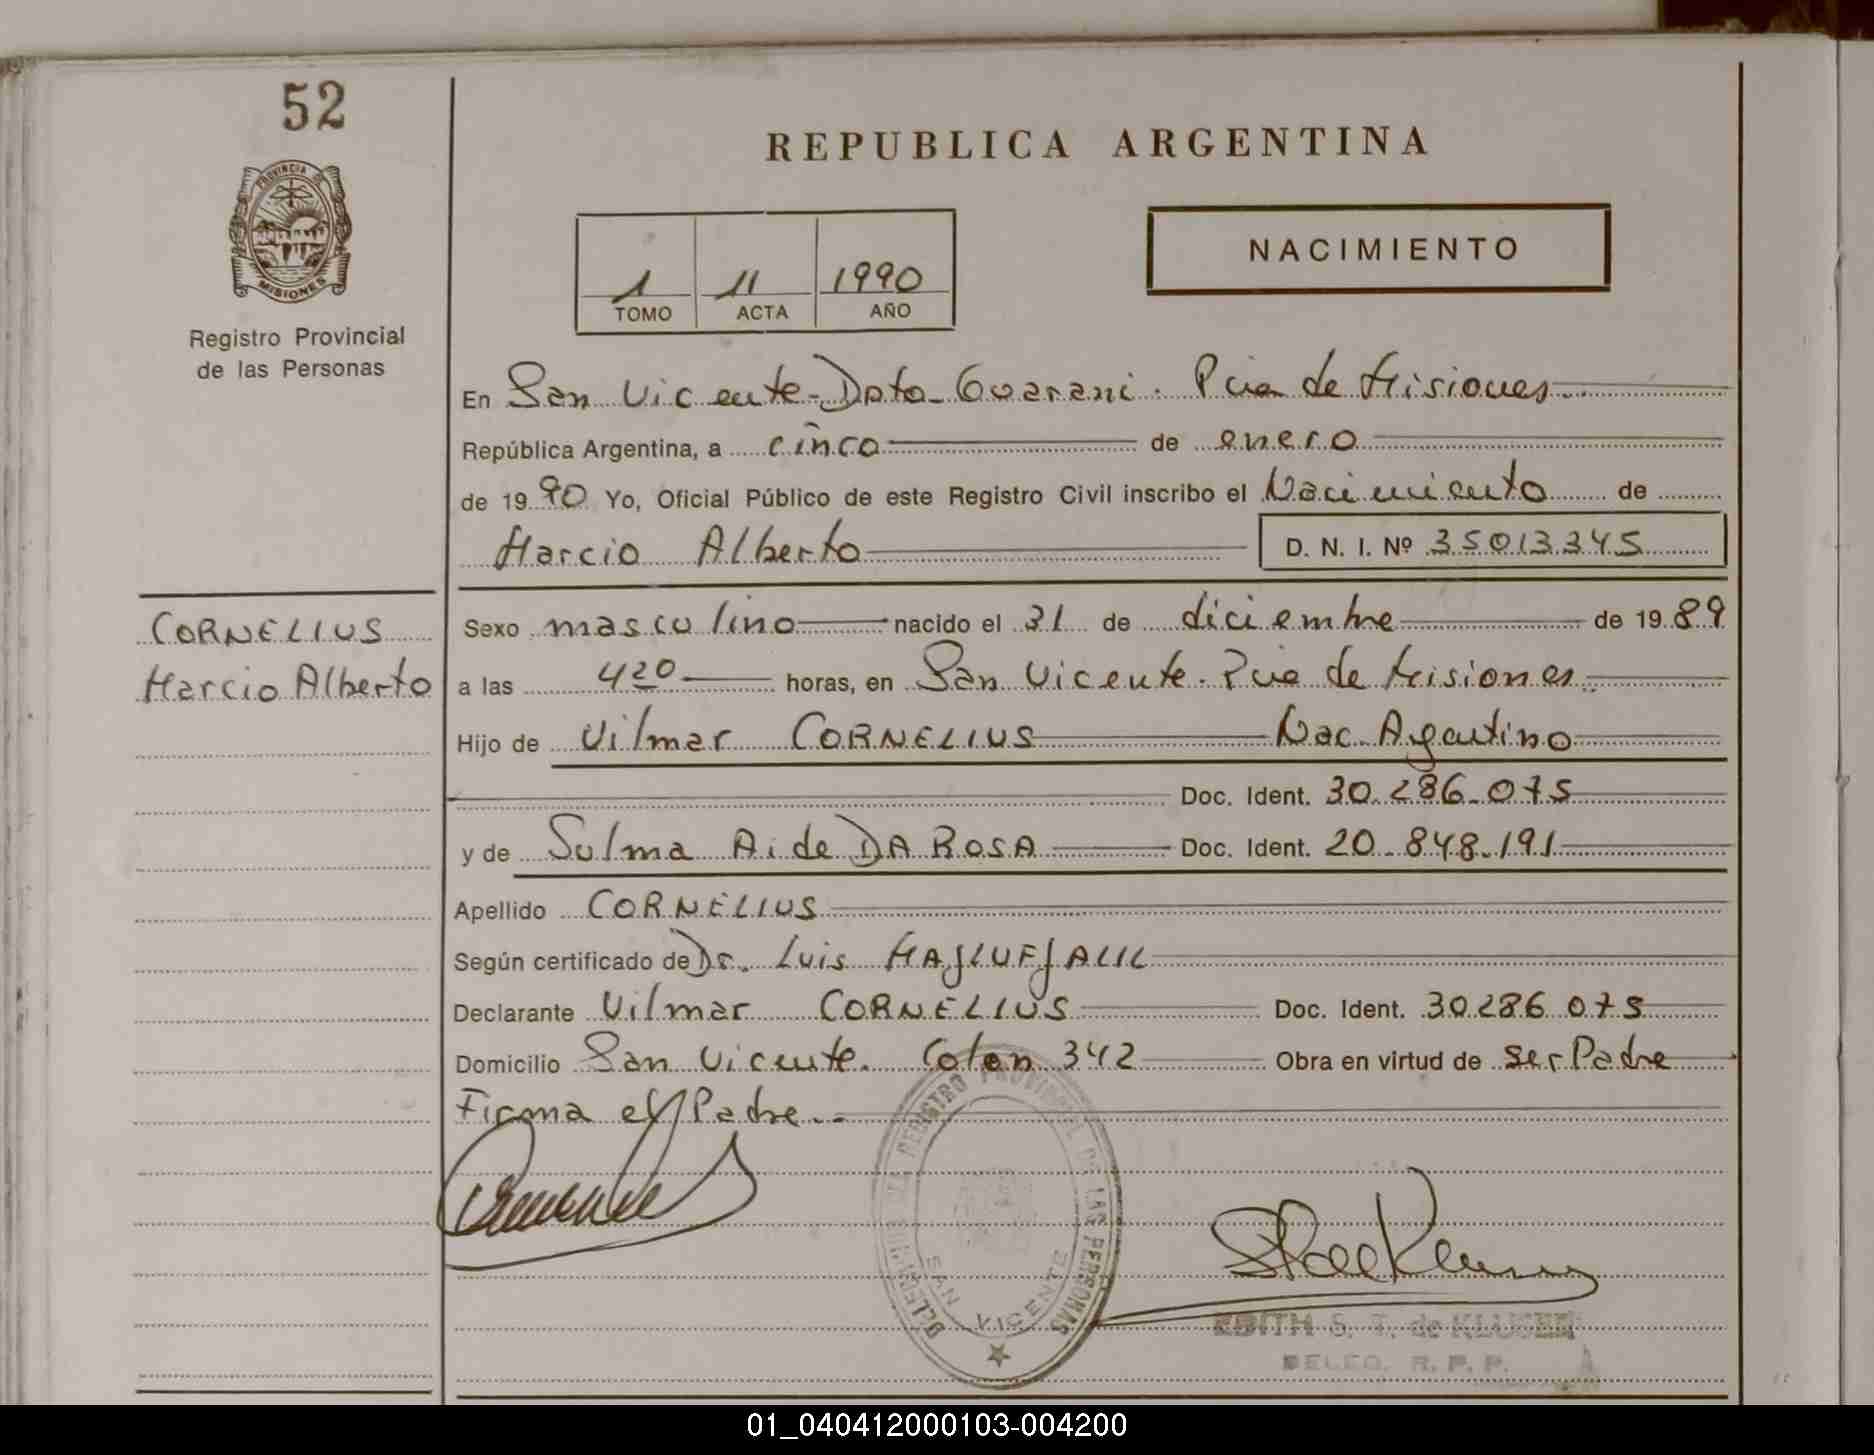 52
REPUBLICA ARGENTINA
PROVINCIA DE
MISIONES
Registro Provincial
de las Personas
1 11 1990
TOMO ACTA AÑO
NACIMIENTO
En San Vicente - Dpto. Guarani. Pcia de Misiones
República Argentina, a cinco de enero
de 1990 Yo, Oficial Público de este Registro Civil inscribo el Nacimiento de
Marcio Alberto D. N. I. Nº 35013345
CORNELIUS
Marcio Alberto
Sexo masculino nacido el 31 de diciembre de 1989
a las 4 20 horas, en San Vicente. Pcia de Misiones
Hijo de Vilmar CORNELIUS Nac. Agentino
Doc. Ident. 30.286.075
y de Sulma Aide DA ROSA Doc. Ident. 20.848.191
Apellido CORNELIUS
Según certificado de Dr. Luis
Declarante Vilmar CORNELIUS Doc. Ident. 30286 075
Domicilio San Vicente. Colon 342 Obra en virtud de ser Padre
Firma el Padre..
REGISTRO PROVINCIAL DE LAS PERSONAS
SAN VICENTE
EDITH S. T. de KLUSEN
DELEG. R. P. P.
01_040412000103-004200